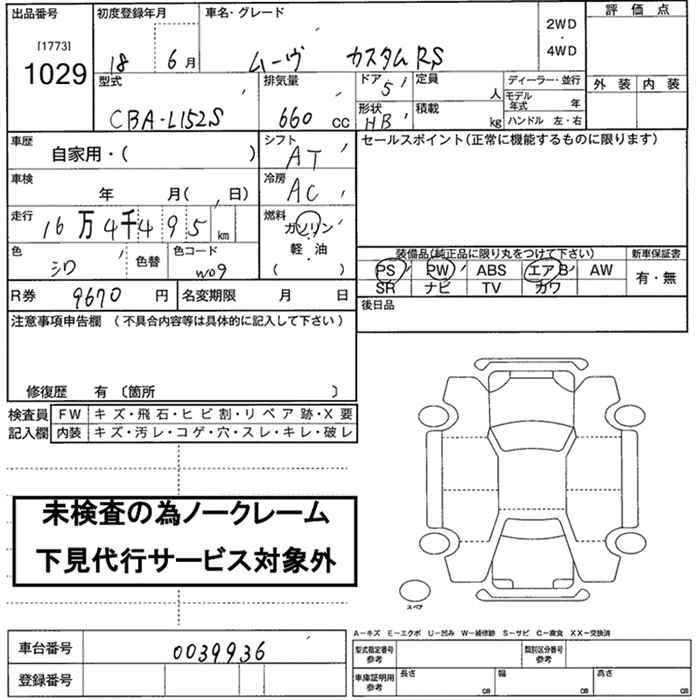 出品番号 初度登録年月 車名・グレード 評価点
[1773] 2WD・4WD
1029 18 6月 ムーヴ カスタムRS
型式 排気量 ドア 5 定員 人 ディーラー・並行 外装 内装
CBA-L152S 660cc 形状 HB 積載 kg モデル年式 年
ハンドル 左・右
車歴 自家用・( ) シフト AT セールスポイント(正常に機能するものに限ります)
車検 年 月( 、 日) 冷房 AC
走行 16万4千495km 燃料 ガソリン
軽・油
( )
色 シロ 色替 色コード W09 装備品(純正品に限り丸をつけて下さい) 新車保証書
PS PW ABS エアB AW 有・無
SR ナビ TV カワ
R券 9670円 名変期限 月 日 後日品
注意事項申告欄 (不具合内容等は具体的に記入して下さい)
修復歴 有 〔箇所 〕
検査員 FW キズ・飛石・ヒビ割・リペア跡・X要
記入欄 内装 キズ・汚レ・コゲ・穴・スレ・キレ・破レ
未検査の為ノークレーム
下見代行サービス対象外
スペア
A-キズ E-エクボ U-凹み W-補修跡 S-サビ C-腐食 XX-交換済
車台番号 0039936 型式指定番号 参考 類別区分番号 参考
登録番号 車庫証明用 参考 長さ cm 幅 cm 高さ cm